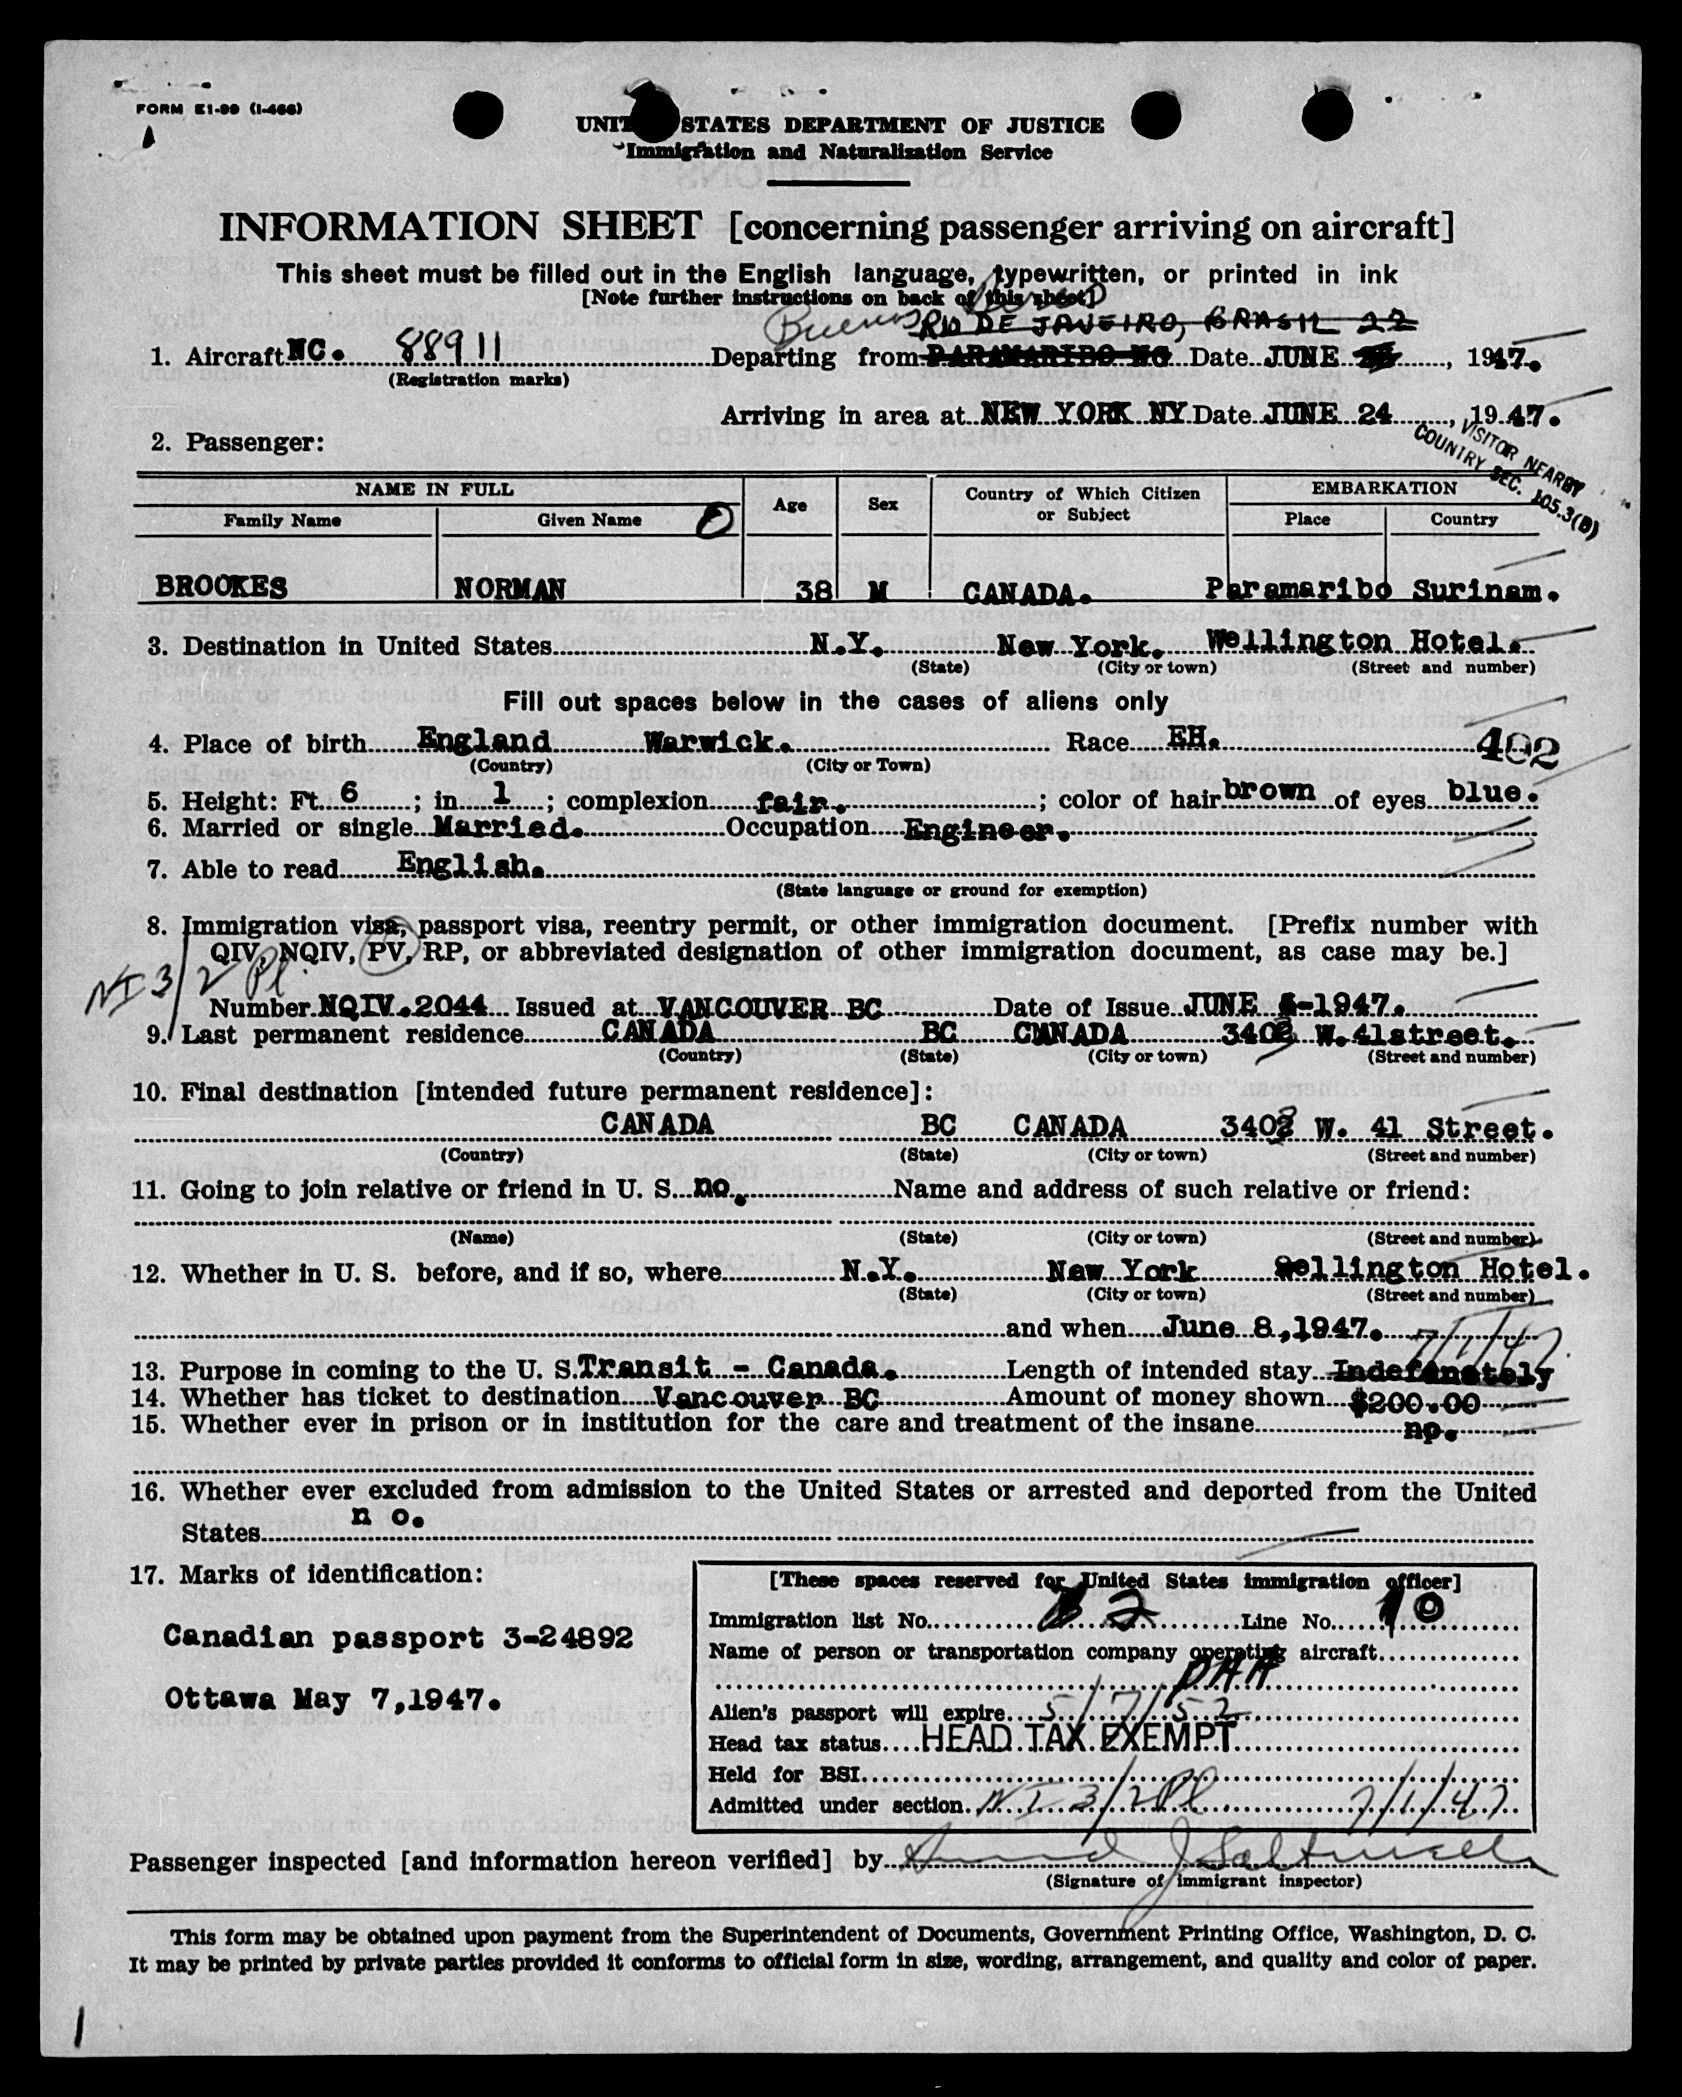 FORM I-99 (I-466)
UNITED STATES DEPARTMENT OF JUSTICE
Immigration and Naturalization Service
INFORMATION SHEET [concerning passenger arriving on aircraft]
This sheet must be filled out in the English language, typewritten, or printed in ink
[Note further instructions on back of this sheet]
Buenos
RIO DE JANEIRO, BRASIL 22
1. Aircraft NC. 88911 Departing from PARAMARIBO Date JUNE , 1947.
(Registration marks)
Arriving in area at NEW YORK NY Date JUNE 24, 1947.
VISITOR NEARBY
COUNTRY SEC. 105.3(B)
2. Passenger:
NAME IN FULL Age Sex Country of Which Citizen or Subject EMBARKATION
Family Name Given Name Place Country
BROOKES NORMAN 38 M CANADA. Paramaribo Surinam.
3. Destination in United States N.Y. New York. Wellington Hotel.
(State) (City or town) (Street and number)
Fill out spaces below in the cases of aliens only
4. Place of birth England Warwick. Race EH. 402
(Country) (City or Town)
5. Height: Ft. 6; in. 1; complexion fair.; color of hair brown of eyes blue.
6. Married or single Married. Occupation Engineer.
7. Able to read English.
(State language or ground for exemption)
8. Immigration visa, passport visa, reentry permit, or other immigration document. [Prefix number with
QIV, NQIV, PV, RP, or abbreviated designation of other immigration document, as case may be.]
NI 3/2 Pl.
Number NQIV.2044 Issued at VANCOUVER BC Date of Issue JUNE -1947.
9. Last permanent residence CANADA BC CMNADA 3403 W. 41street.
(Country) (State) (City or town) (Street and number)
10. Final destination [intended future permanent residence]:
CANADA BC CANADA 3403 W. 41 Street.
(Country) (State) (City or town) (Street and number)
11. Going to join relative or friend in U. S. no. Name and address of such relative or friend:
(Name) (State) (City or town) (Street and number)
12. Whether in U. S. before, and if so, where N.Y. New York Wellington Hotel.
(State) (City or town) (Street and number)
and when June 8,1947.
7/1/47.
13. Purpose in coming to the U. S. Transit - Canada. Length of intended stay Indefanetely
14. Whether has ticket to destination Vancouver BC Amount of money shown $200.00
15. Whether ever in prison or in institution for the care and treatment of the insane no.
16. Whether ever excluded from admission to the United States or arrested and deported from the United
States n o.
17. Marks of identification:
Canadian passport 3-24892
Ottawa May 7,1947.
[These spaces reserved for United States immigration officer]
Immigration list No. 2 Line No. 10
Name of person or transportation company operating aircraft
PAA
Alien's passport will expire 5/7/52
Head tax status HEAD TAX EXEMPT
Held for BSI
Admitted under section NI 3/2 Pl 7/1/47
Passenger inspected [and information hereon verified] by
(Signature of immigrant inspector)
This form may be obtained upon payment from the Superintendent of Documents, Government Printing Office, Washington, D. C.
It may be printed by private parties provided it conforms to official form in size, wording, arrangement, and quality and color of paper.
1